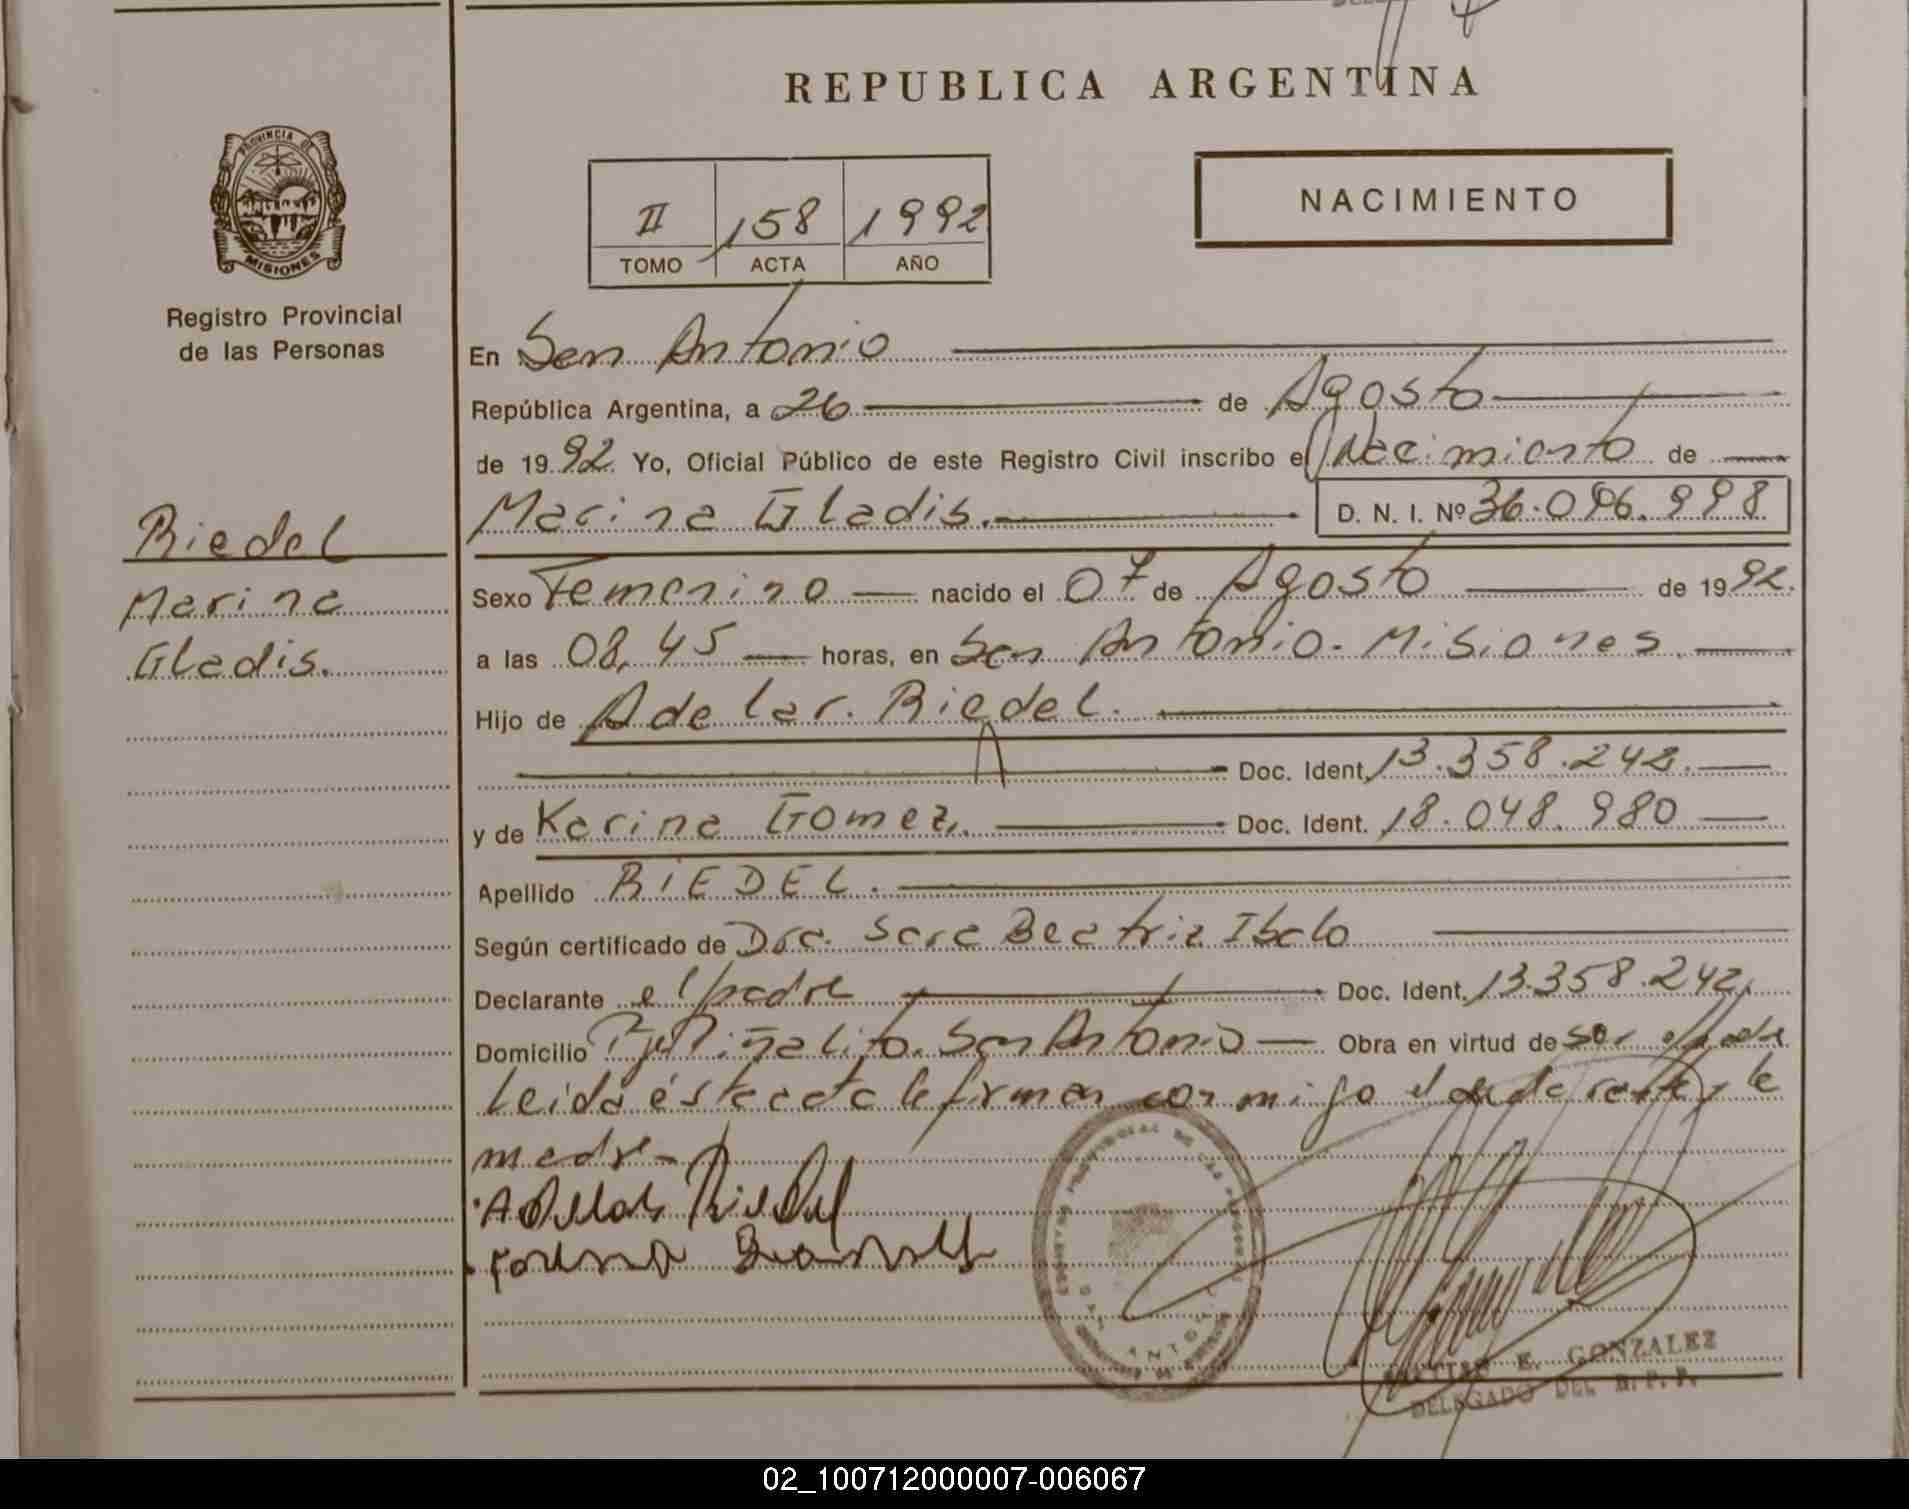 REPUBLICA ARGENTINA
PROVINCIA DE
MISIONES
Registro Provincial
de las Personas
II 158 1992
TOMO ACTA AÑO
NACIMIENTO
En San Antonio
República Argentina, a 26 de Agosto
de 1992. Yo, Oficial Público de este Registro Civil inscribo el Nacimiento de
Marina Gladis. D. N. I. Nº 36.096.998
Riedel
Marina
Gladis.
Sexo Femenino nacido el 07 de Agosto de 1992.
a las 08,45 horas, en San Antonio. Misiones.
Hijo de Adelar. Riedel.
Doc. Ident. 13.358.242.
y de Karina Gomez. Doc. Ident. 18.048.980
Apellido RIEDEL.
Según certificado de Dra. Sara Beatriz Ibalo
Declarante el padre Doc. Ident. 13.358.242.
Domicilio Piñalito. San Antonio Obra en virtud de ser el padre
Leida ésta acta la firman conmigo el declarante y la
madre-
E. GONZALEZ
DELEGADO DEL R. P. P.
02_100712000007-006067